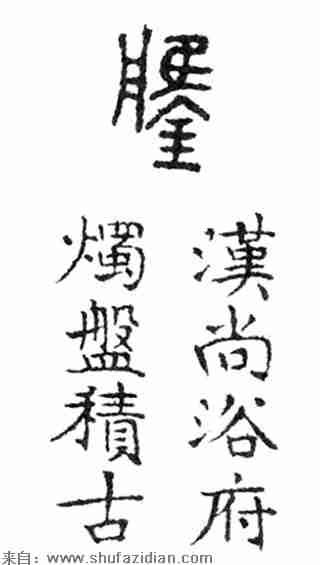 漢尚浴府
燭盤積古
来自：www.shufazidian.com